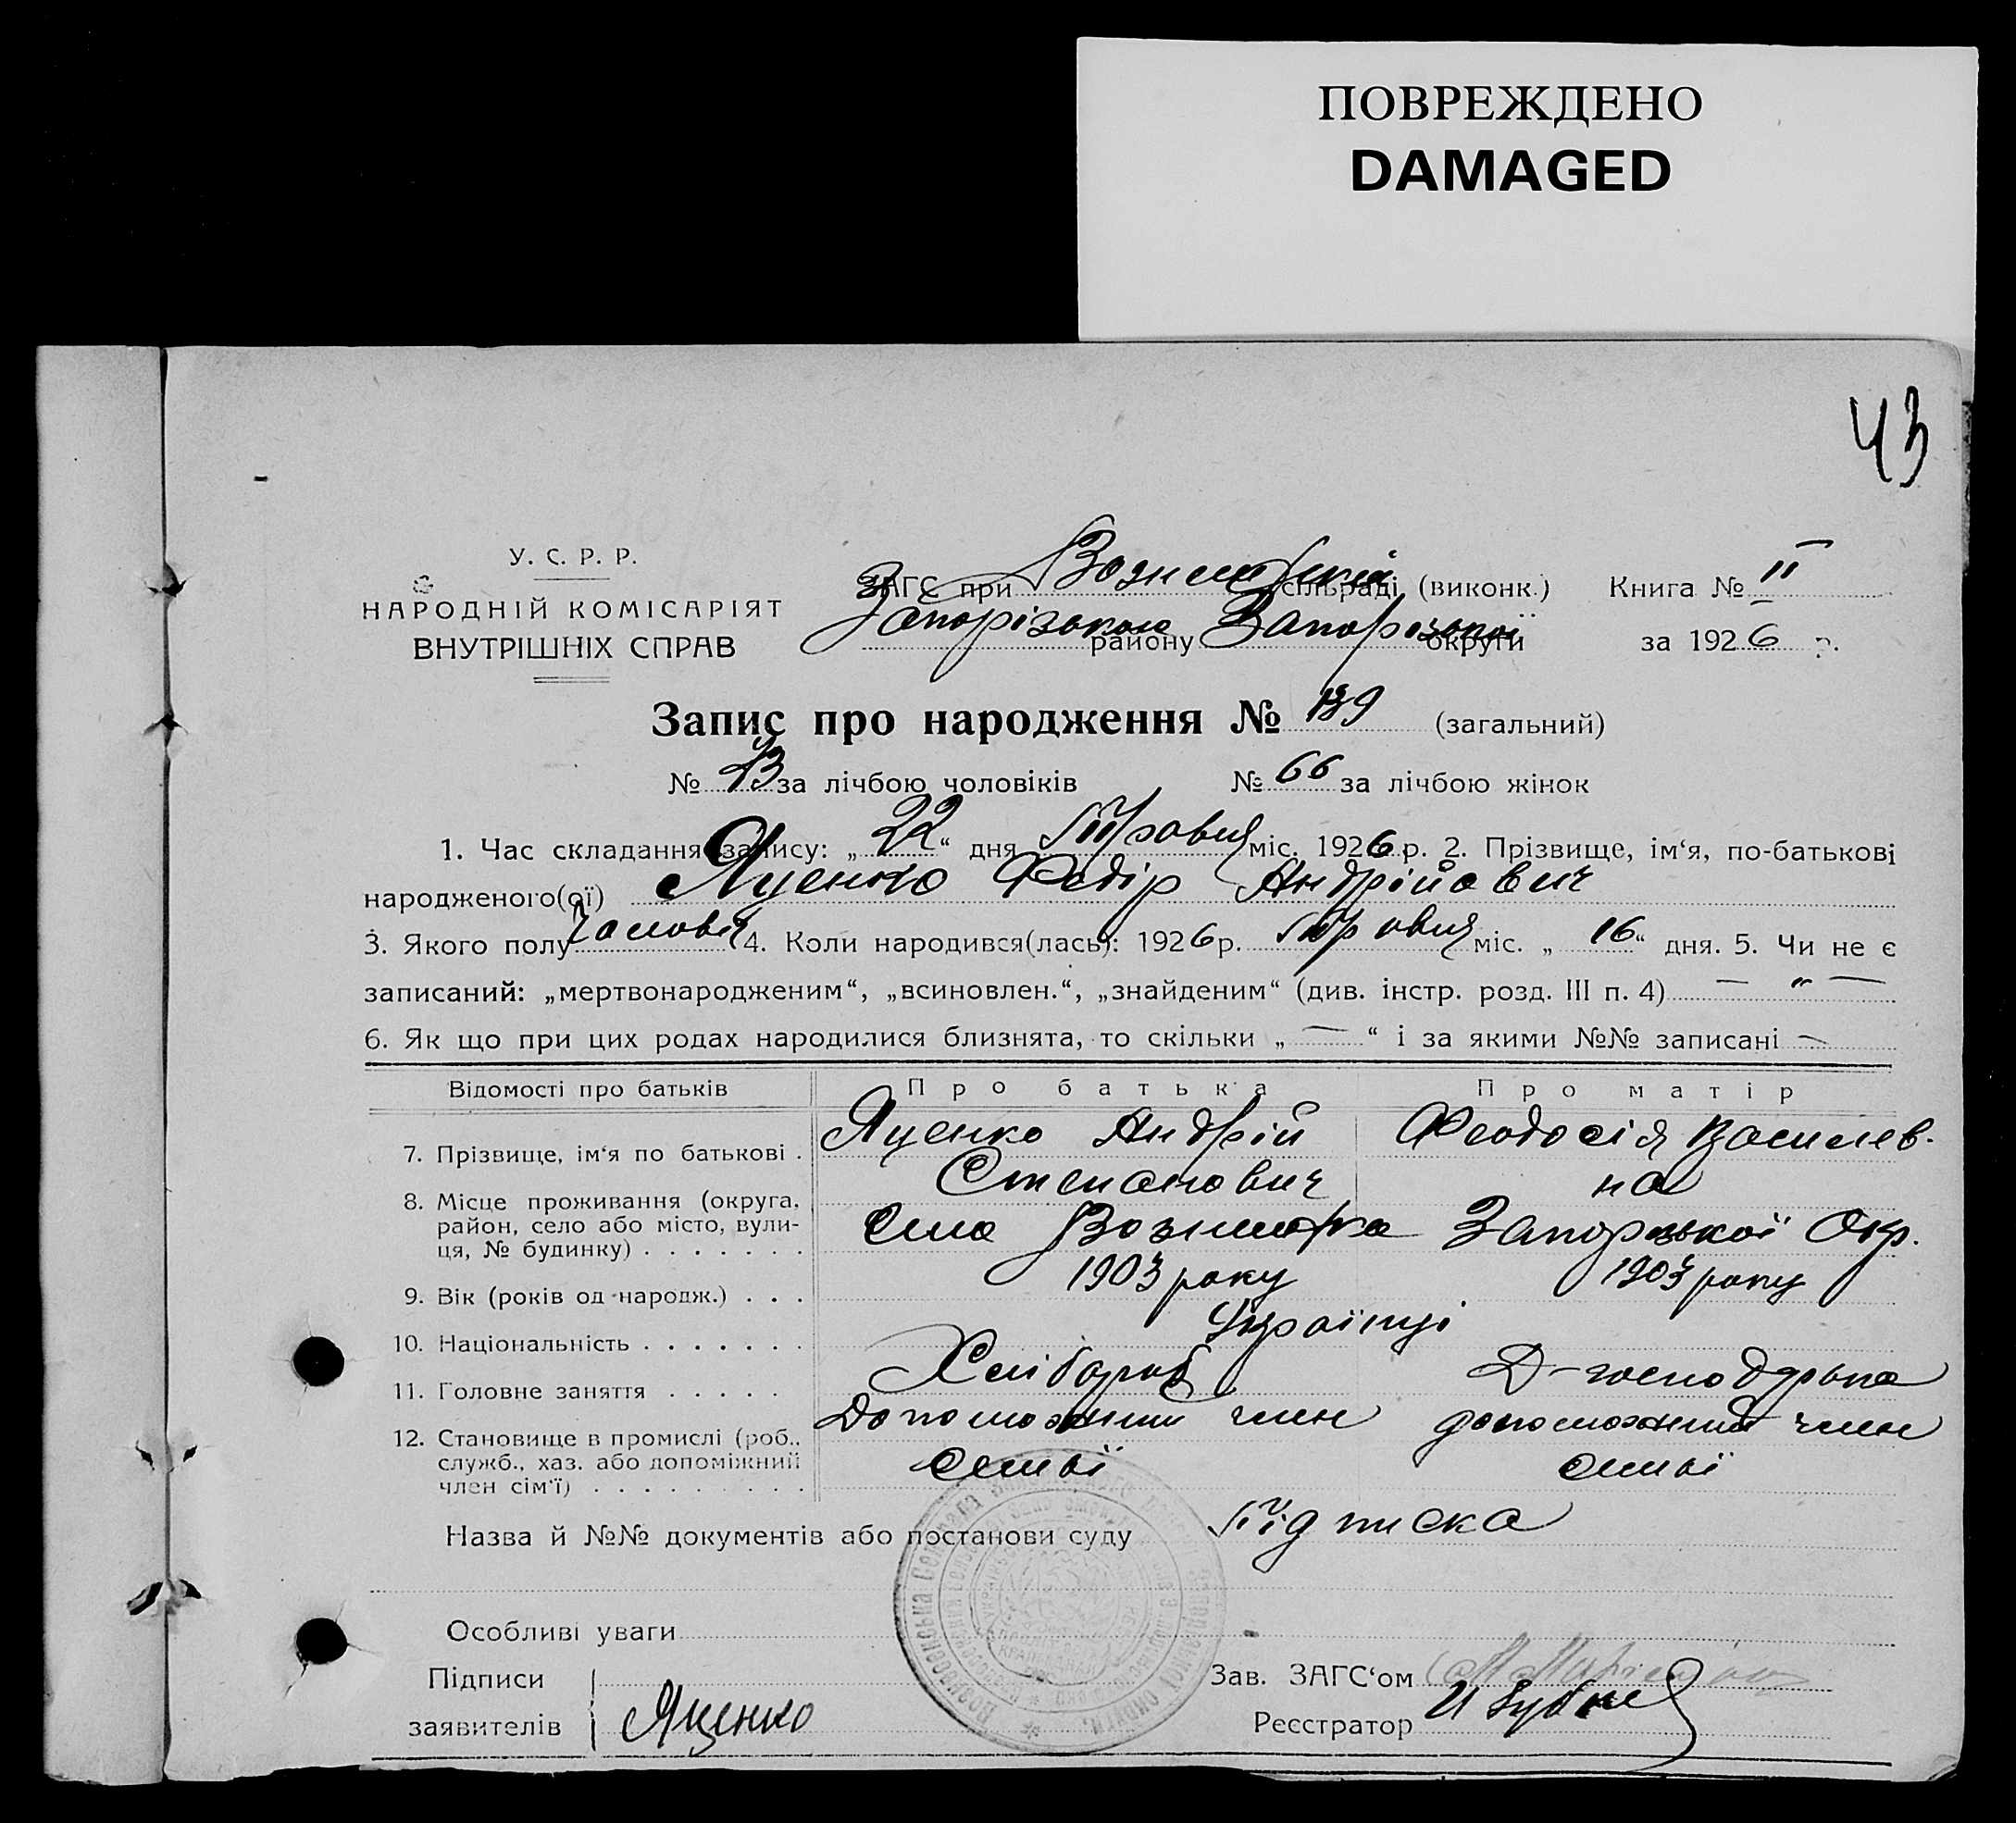 ПОВРЕЖДЕНО
DAMAGED
43
У. С. Р. Р.
НАРОДНІЙ КОМІСАРІЯТ
ВНУТРІШНІХ СПРАВ
ЗАГС при сільраді (виконк.) Книга № II
Запорізького району Запорізької округи за 1926 р.
Запис про народження № 139 (загальний)
№ 73 за лічбою чоловіків № 66 за лічбою жінок
1. Час складання запису: „22“ дня Травня міс. 1926 р. 2. Прізвище, ім‘я, по-батькові
народженого(ої) Яценко Федір Андрійович
3. Якого полу 4. Коли народився(лась): 1926 р. Травня міс. „16“ дня. 5. Чи не є
записаний: „мертвонародженим“, „всиновлен.“, „знайденим“ (див. інстр. розд. III п. 4) — „ —
6. Як що при цих родах народилися близнята, то скільки „ — “ і за якими №№ записані —
Відомості про батьків Про батька Про матір
7. Прізвище, ім‘я по батькові . Яценко Андрій Степанович Феодосія Василев-на
8. Місце проживання (округа, район, село або місто, вулиця, № будинку) . . . . . . . Село Вознесенка Запорізької Окр.
9. Вік (років од народж.) . . . 1903 року 1903 року
10. Національність . . . . . . . Українці
11. Головне заняття . . . . . Хлібороб Д-господарька
12. Становище в промислі (роб., служб., хаз. або допоміжний член сім‘ї) . . . . . . . . . Допоможний член семьї допоможний член семьї
Назва й №№ документів або постанови суду Підписка
Особливі уваги
Підписи заявителів Яценко
Зав. ЗАГС‘ом
Реєстратор